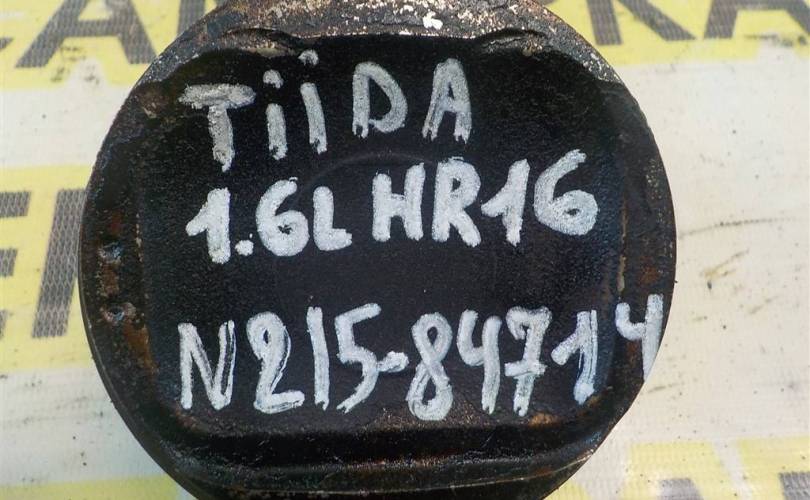 TiiDA
1.6L HR16
N215-84714